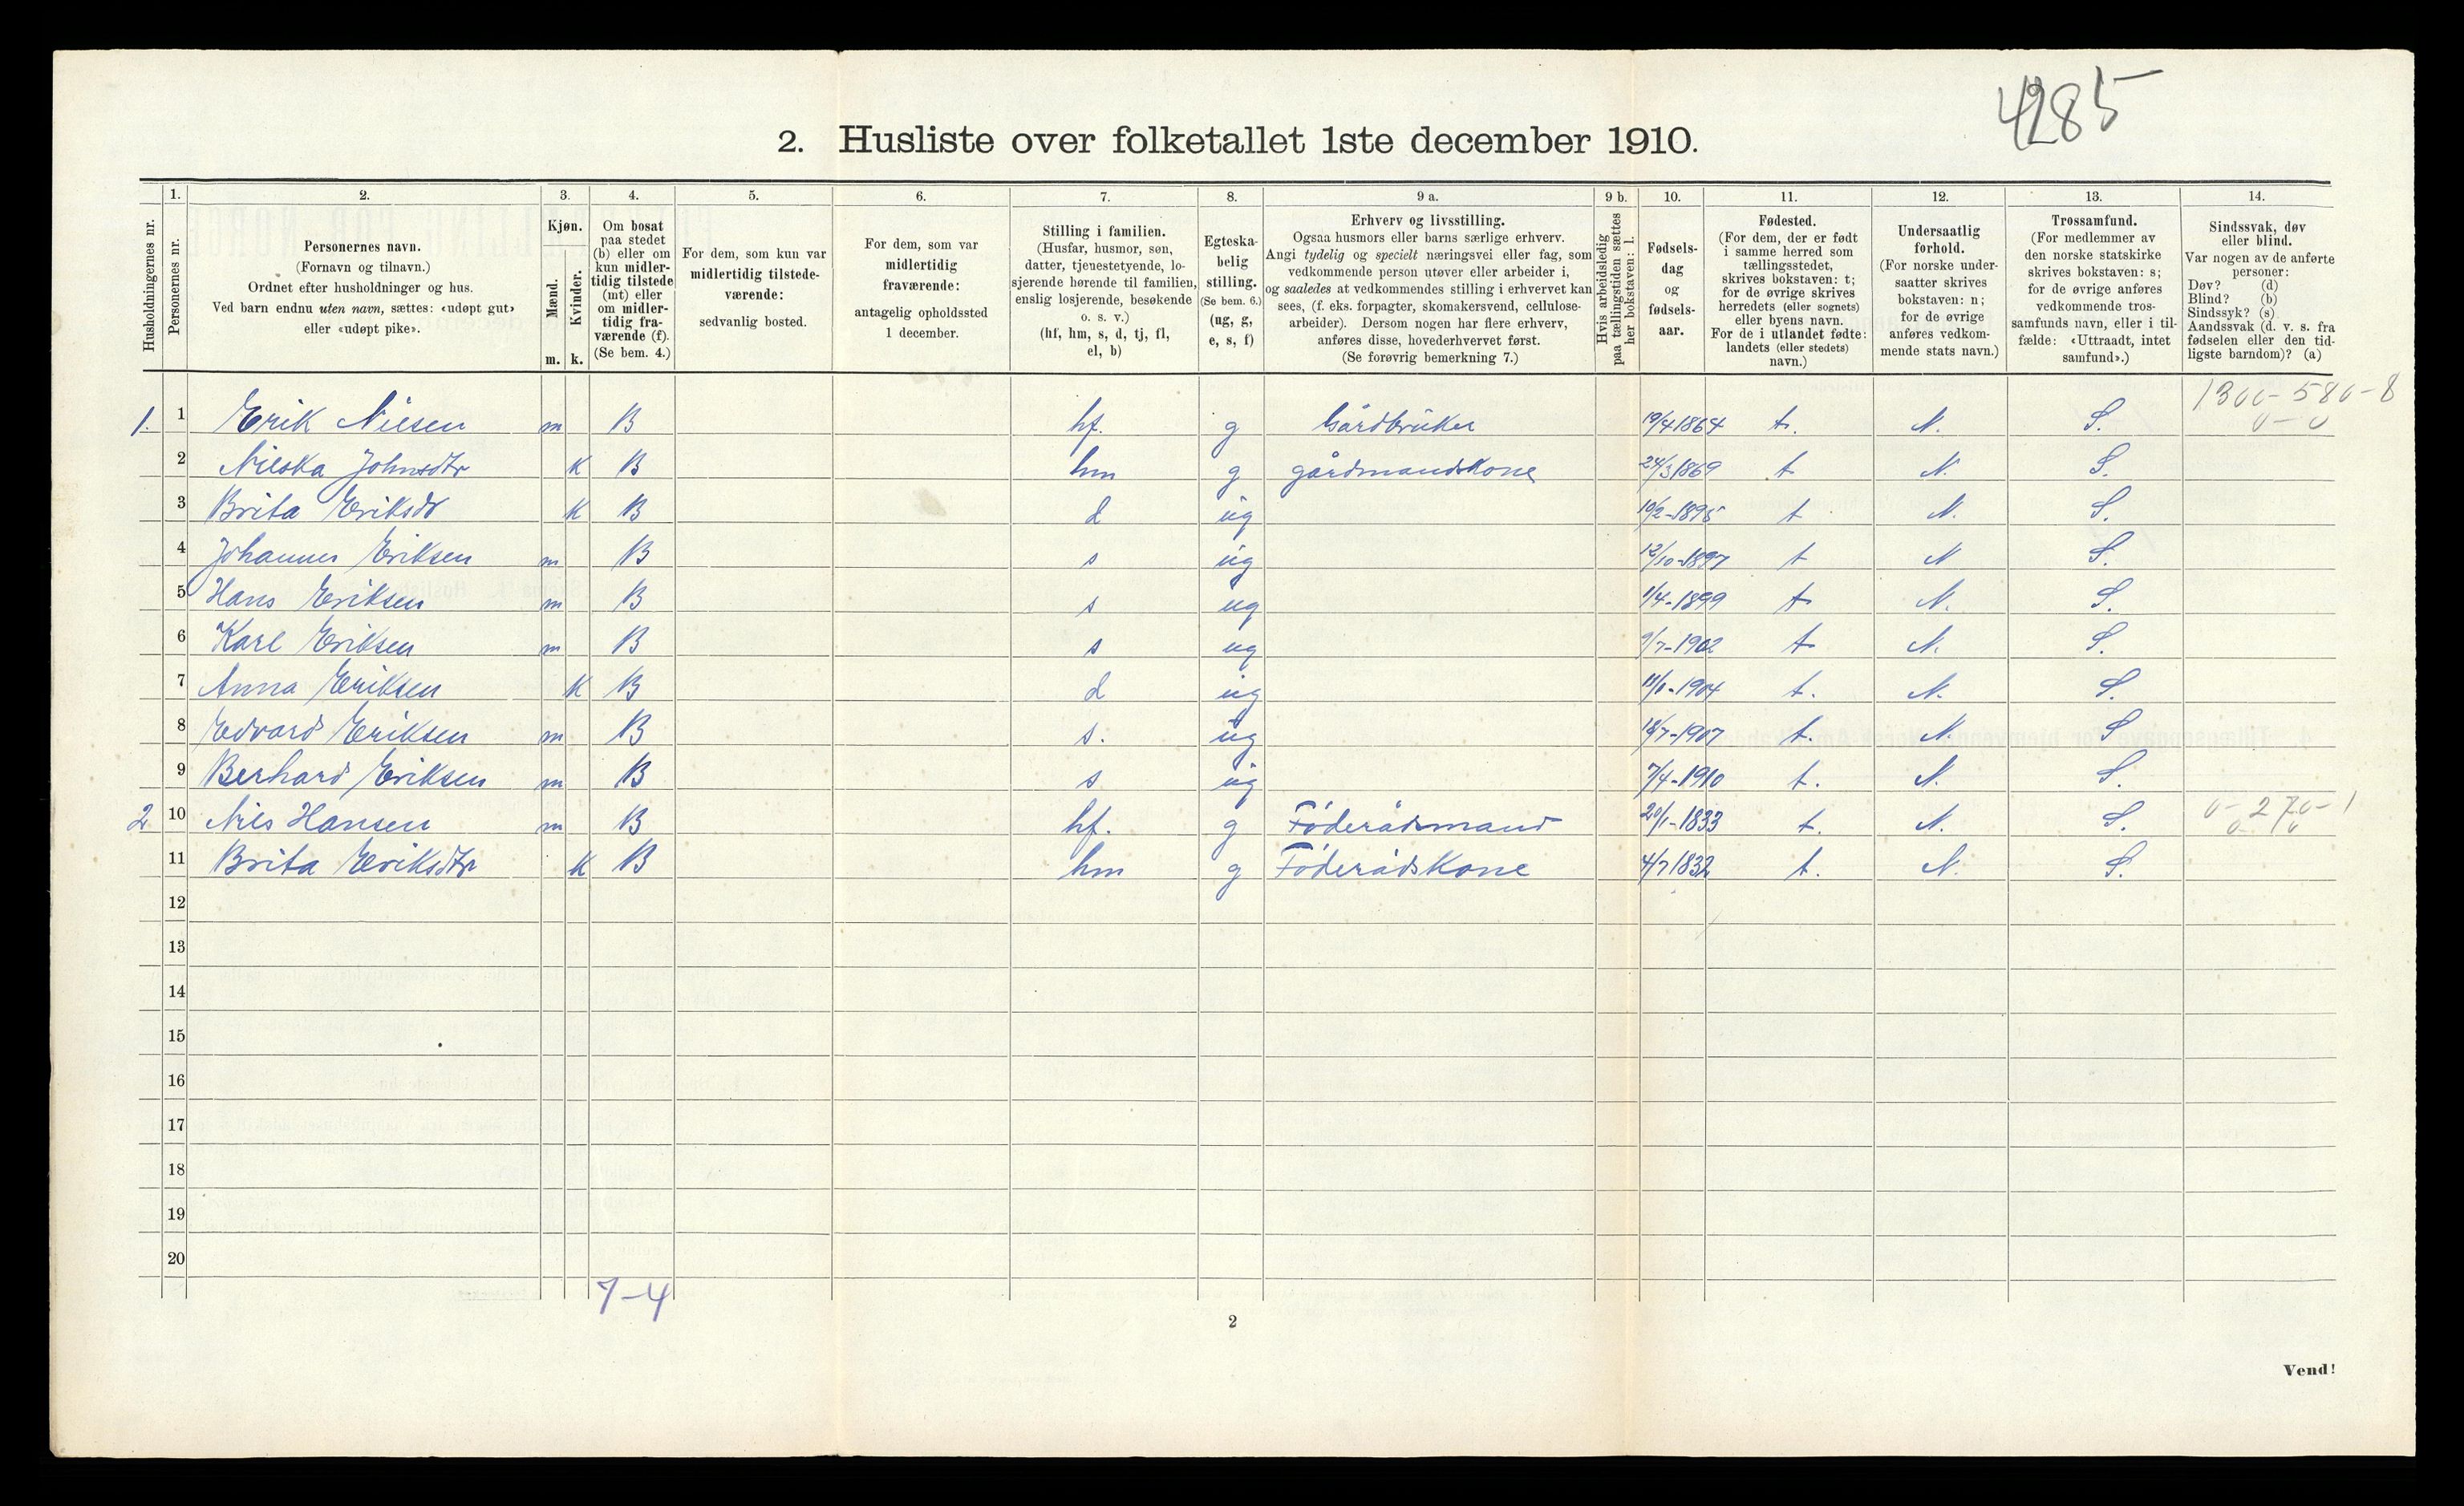 4285
2. Husliste over folketallet 1ste december 1910.
Husholdningernes nr.
1. Personernes nr.
2. Personernes navn.
(Fornavn og tilnavn.)
Ordnet efter husholdninger og hus.
Ved barn endnu uten navn, sættes: «udøpt gut»
eller «udøpt pike».
3. Kjøn.
Mænd. m.
Kvinder. k.
4. Om bosat
paa stedet
(b) eller om
kun midler-
tidig tilstede
(mt) eller
om midler-
tidig fra-
værende (f).
(Se bem. 4.)
5. For dem, som kun var
midlertidig tilstede-
værende:
sedvanlig bosted.
6. For dem, som var
midlertidig
fraværende:
antagelig opholdssted
1 december.
7. Stilling i familien.
(Husfar, husmor, søn,
datter, tjenestetyende, lo-
sjerende hørende til familien,
enslig losjerende, besøkende
o. s. v.)
(hf, hm, s, d, tj, fl,
el, b)
8. Egteska-
belig
stilling.
(Se bem. 6.)
(ug, g,
e, s, f)
9 a. Erhverv og livsstilling.
Ogsaa husmors eller barns særlige erhverv.
Angi tydelig og specielt næringsvei eller fag, som
vedkommende person utøver eller arbeider i,
og saaledes at vedkommendes stilling i erhvervet kan
sees, (f. eks. forpagter, skomakersvend, cellulose-
arbeider). Dersom nogen har flere erhverv,
anføres disse, hovederhvervet først.
(Se forøvrig bemerkning 7.)
9 b. Hvis arbeidsledig
paa tællingstiden sættes
her bokstaven: l.
10. Fødsels-
dag
og
fødsels-
aar.
11. Fødested.
(For dem, der er født
i samme herred som
tællingsstedet,
skrives bokstaven: t;
for de øvrige skrives
herredets (eller sognets)
eller byens navn.
For de i utlandet fødte:
landets (eller stedets)
navn.)
12. Undersaatlig
forhold.
(For norske under-
saatter skrives
bokstaven: n;
for de øvrige
anføres vedkom-
mende stats navn.)
13. Trossamfund.
(For medlemmer av
den norske statskirke
skrives bokstaven: s;
for de øvrige anføres
vedkommende tros-
samfunds navn, eller i til-
fælde: «Uttraadt, intet
samfund».)
14. Sindssvak, døv
eller blind.
Var nogen av de anførte
personer:
Døv? (d)
Blind? (b)
Sindssyk? (s)
Aandssvak (d. v. s. fra
fødselen eller den tid-
ligste barndom)? (a)
1. 1 Erik Nilsen m B hf. g Gårdbrüker 19/4 1864 t. N. S. 1300-580-8
0-0
2 Nilska Johnsdtr K B hm g gårdmandskone 24/3 1869 t N. S.
3 Brita Eriksdr K B d ug 10/2-1895 t N. S.
4 Johannes Eriksen m B s ug 12/10-1897 t N S.
5 Hans Eriksen m B s ug 1/4-1899 t N. S.
6 Karl Eriksen m B s ug 9/7-1902 t N. S.
7 Anna Eriksen K B d ug 1904 t. N. S.
8 Edvard Eriksen m B s. ug 18/7-1907 t. N. S
9 Berhard Eriksen m B s ug 7/4-1910 t. N. S.
2 10 Nils Hansen m B hf. g Føderådsmand 20/1-1833 t. N. S. 0-270-1
0-0
11 Brita Eriksdtr K B hm g Føderådskone 4/7 1832 t. N. S.
12
13
14
15
16
17
18
19
20
7-4
2
Vend!